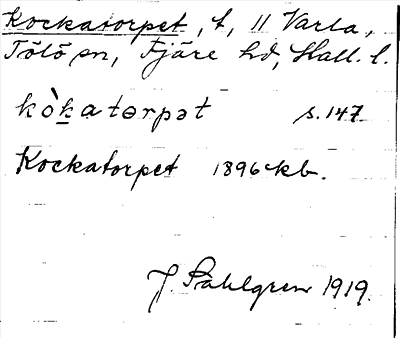 Kockatorpet, t, 11 Varla,
Tölö sn, Fjäre hd, Hall. l.
kòkatɵrpət s. 147
Kockatorpet 1896 ckb.
J. Sahlgren 1919.